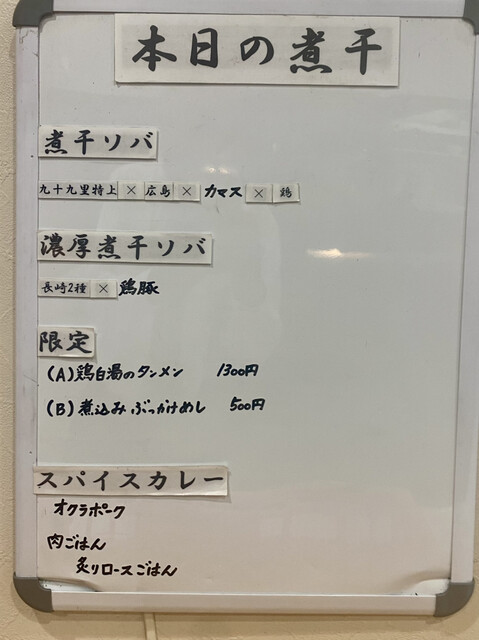 本日の煮干
煮干ソバ
九十九里特上 × 広島 × カマス × 鶏
濃厚煮干ソバ
長崎2種 × 鶏豚
限定
(A) 鶏白湯のタンメン 1300円
(B) 煮込みぶっかけめし 500円
スパイスカレー
オクラポーク
肉ごはん
炙りロースごはん